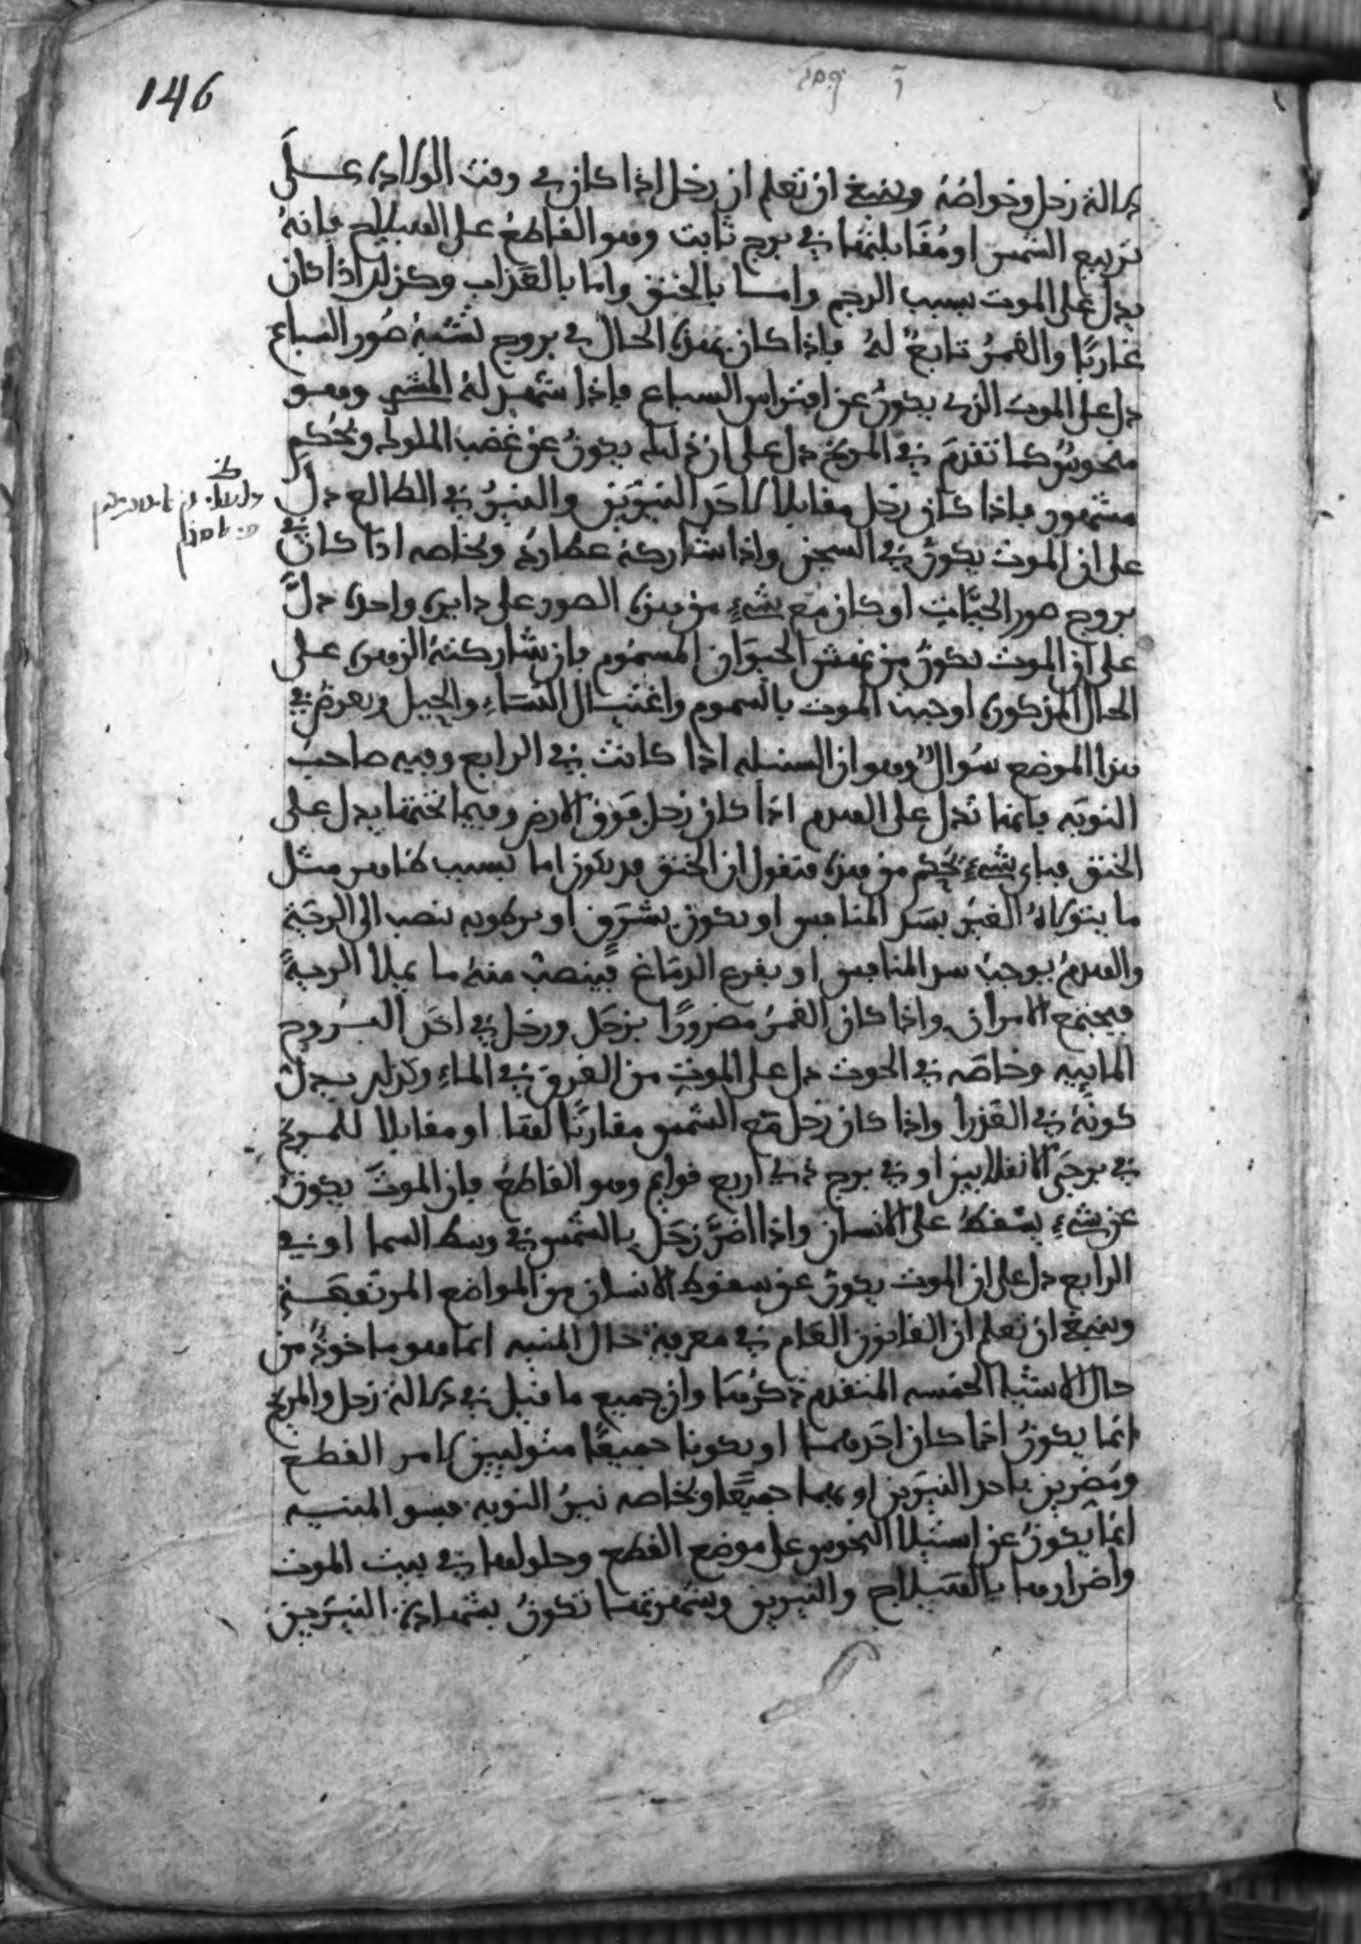 146
دلالة زحل وخواصّهُ وينبغي ان تعلم ان زحل اذا كان في وقت الولادة على
تربيع الشمس او مُقَابلتها في برج ثابت وهو القاطعُ على الهيلاج فانهُ
يدل على الموت بسبب الرجم واما بالخنق واما بالعَذاب وكذلك اذا كان
غاربًا والقمرُ تابعٌ لهُ فاذا كان بهذه الحال في بروج تُشبهُ صُور السباع
دل على الموت الذي يكونُ عن افتراس السباع فاذا شهد لهُ المشتري وهو
منحوسٌ كما تقدمَ في المريخ دل على ان ذلك يكونُ عن غضب الملوك ونحُكم
مشهور فاذا كان زحل مقابلا لاحَد النيّرَين والنيرُ في الطالع دلّ
على ان الموت يكونُ في السجن واذا شاركهُ عطارد وبخاصه اذا كان في
بروج صور الحيَّات او كان مع شيءٍ من هذه الصور على دايرة واحدة دلَّ
على ان الموت يكونُ من نهش الحيوَان المسمُوم فان شاركتهُ الزهرة على
الحال المذكورة اوجبت الموت بالسموم واغتيال النسَاءِ والحِيل ويعرضُ في
هذا الموضع سُوالٌ وهو ان السنبله اذا كانت في الرابع وفيه صاحبُ
النوبَه فانها تدل على الهدم اذا كان زحل فوق الارض وفيما تحتها يدل على
الخنق فباي شيءٍ نحكم من هذه فنقول ان الخنق قد يكون اما بسبب ظاهر مثل
ما يتولاهُ الغيرُ بسَدّ المنافس او يكون بشَرَق او برطوبه تنصب الى الريَّة
والهدمُ يوجبُ سد المنافس او يقرع الدمَاغ فينصبُ منهُ ما يملا الريةَ
فيجتمع الامران واذا كان القمرُ مَضرورًا بزحَل وزحل في احَد البُروج
الماييه وخاصّه في الحوت دل على الموت من الغرق في الماءِ وكذلك يدلُّ
كونهُ في العَذرا واذا كان زحل مَع الشمس مقارنًا لهَا او مقابلا للمريخ
في برجَي الانقلابين او في برج ذي اربع قوايم وهو القاطعُ فان الموتَ يكونُ
عن شيءٍ يسْقطُ على الانسان واذا اضرَّ زحَل بالشمس في وسط السما او في
الرابع دل على ان الموت يكونُ عن سقوط الانسان من المواضع المرتفعَة
وينبغي ان تعلم ان القانون العَام في معرفة حال المنيه انما هو ماخوذٌ من
حال الاشيا الخمسه المتقدم ذكرُهَا وان جميع ما قيل في دلالة زحل والمريخ
انمَا يكونُ اذا كان احَدهما او يكونا جميعًا متوليين لامر القطع
ومُضرين باحد النيّرَين او بهما جميعًا وبخاصه نيرُ النوبه فسو المنيه
انمَا يكونُ عن استيلا النحوس على موضع القطع وحلولهَا في بيت الموت
واضرارها بالهيلاج والنيرين وشهرتها تكونُ بشهادة النيّرين